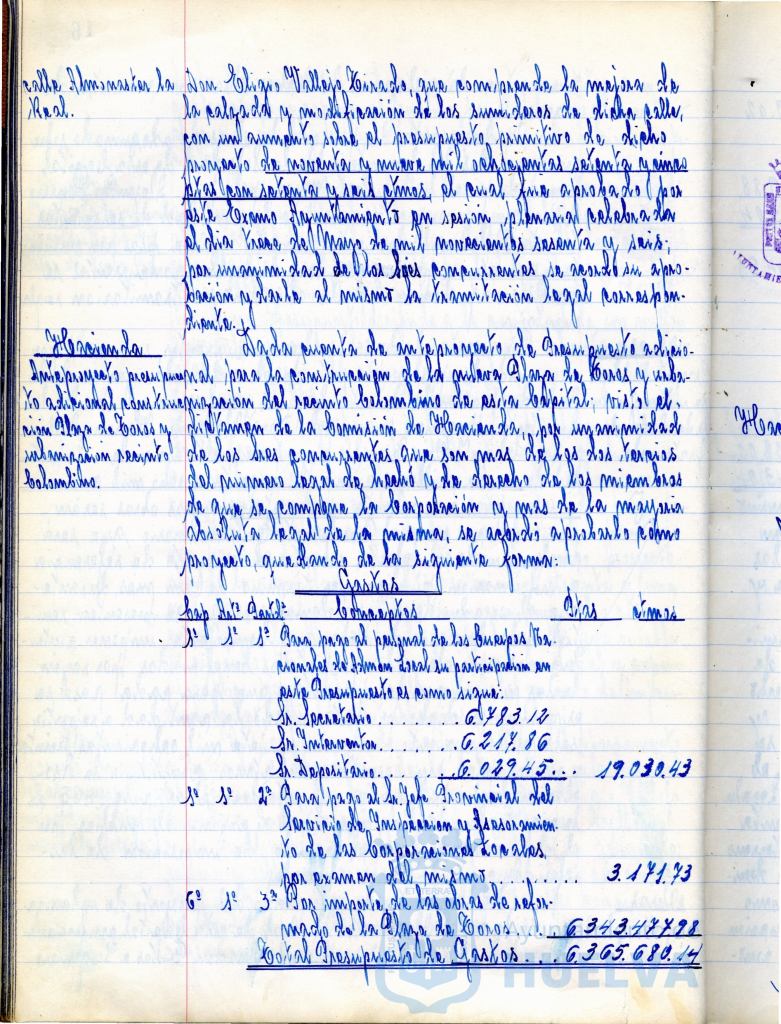 calle Almonaster la
Real.
Don Eligio Vallejo Tirado, que comprende la mejora de
la calzada y modificación de los sumideros de dicha calle,
con un aumento sobre el presupuesto primitivo de dicho
proyecto de noventa y nueve mil ochocientas setenta y cinco
ptas con setenta y seis ctmos, el cual fué aprobado por
este Excmo Ayuntamiento en sesión plenaria celebrada
el día trece de Mayo de mil novecientos sesenta y seis;
por unanimidad de los Sres concurrentes se acordó su apro-
bación y darle al mismo la tramitación legal correspon-
diente.
Hacienda
Anteproyecto presupues
to adicional construc
ción Plaza de Toros y
urbanización recinto
Colombino.
Dada cuenta de anteproyecto de Presupuesto adicio-
nal, para la construcción de la nueva Plaza de Toros y urba-
nización del recinto Colombino de esta Capital; visto el
dictamen de la Comisión de Hacienda, por unanimidad
de los Sres concurrentes que son mas de los dos tercios
del número legal de hecho y de derecho de los miembros
de que se compone la Corporación y mas de la mayoria
absoluta legal de la misma, se acordó aprobarlo como
proyecto, quedando de la siguiente forma:
Gastos
Cap Artº Partdª Conceptos Ptas ctmos
1º 1º 1ª Para pago al personal de los Cuerpos Na-
cionales de Admon Local su participación en
este Presupuesto es como sigue:
Sr. Secretario 6.783.12
Sr. Interventor 6.217.86
Sr. Depositario 6.029.45 19.030.43
1º 1º 2ª Para pago al Sr. Jefe Provincial del
Servicio de Inspección y Asesoramien-
to de las Corporaciones Locales,
por examen del mismo 3.171.73
6º 1º 3ª Por importe de las obras de refor-
mado de la Plaza de Toros 6.343.477.98
Total Presupuesto de Gastos 6.365.680.14
HUELVA